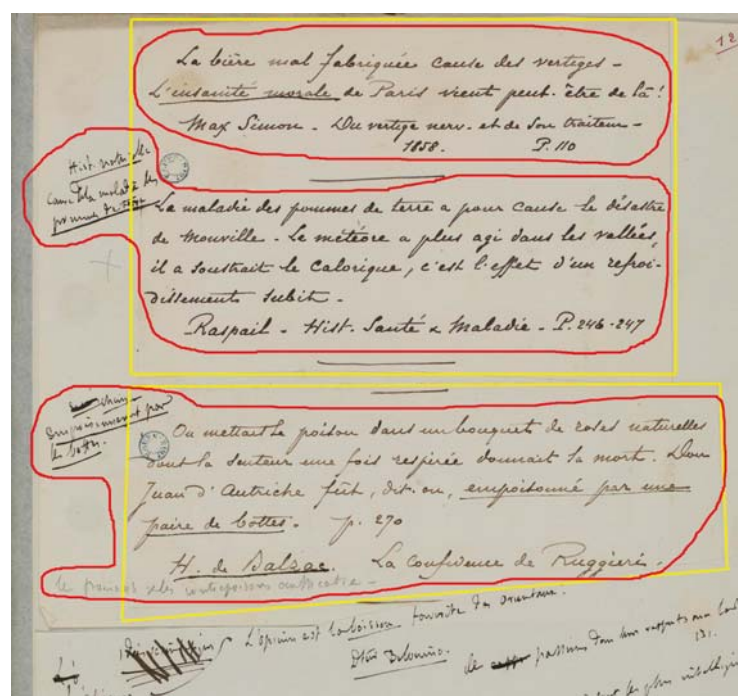 12
La bière mal fabriquée cause des vertiges -
L'insanité morale de Paris vient peut-être de là!
Max Simon - Du vertige nerv. et de son traitem -
1858. P. 110
Hist. naturelle
Cause de la maladie des
pommes de terre
La maladie des pommes de terre a pour cause le désastre
de Monville - Le météore a plus agi dans les vallées,
il a soustrait le calorique, c'est l'effet d'un refroi-
dissements subit -
Raspail - Hist. Santé & Maladie - P. 246-247
empoisonnement par
les bottes.
On mettait le poison dans un bouquet de roses naturelles
dont la senteur une fois respirée donnait la mort. Don
Juan d'Autriche fût, dit-on, empoisonné par une
paire de bottes. p. 270
H. de Balzac. La confidence de Ruggieri.
les contrepoisons
L'opium est la boisson favorite des orientaux.
Debreyne.
de passions dans leurs rapports avec
131.